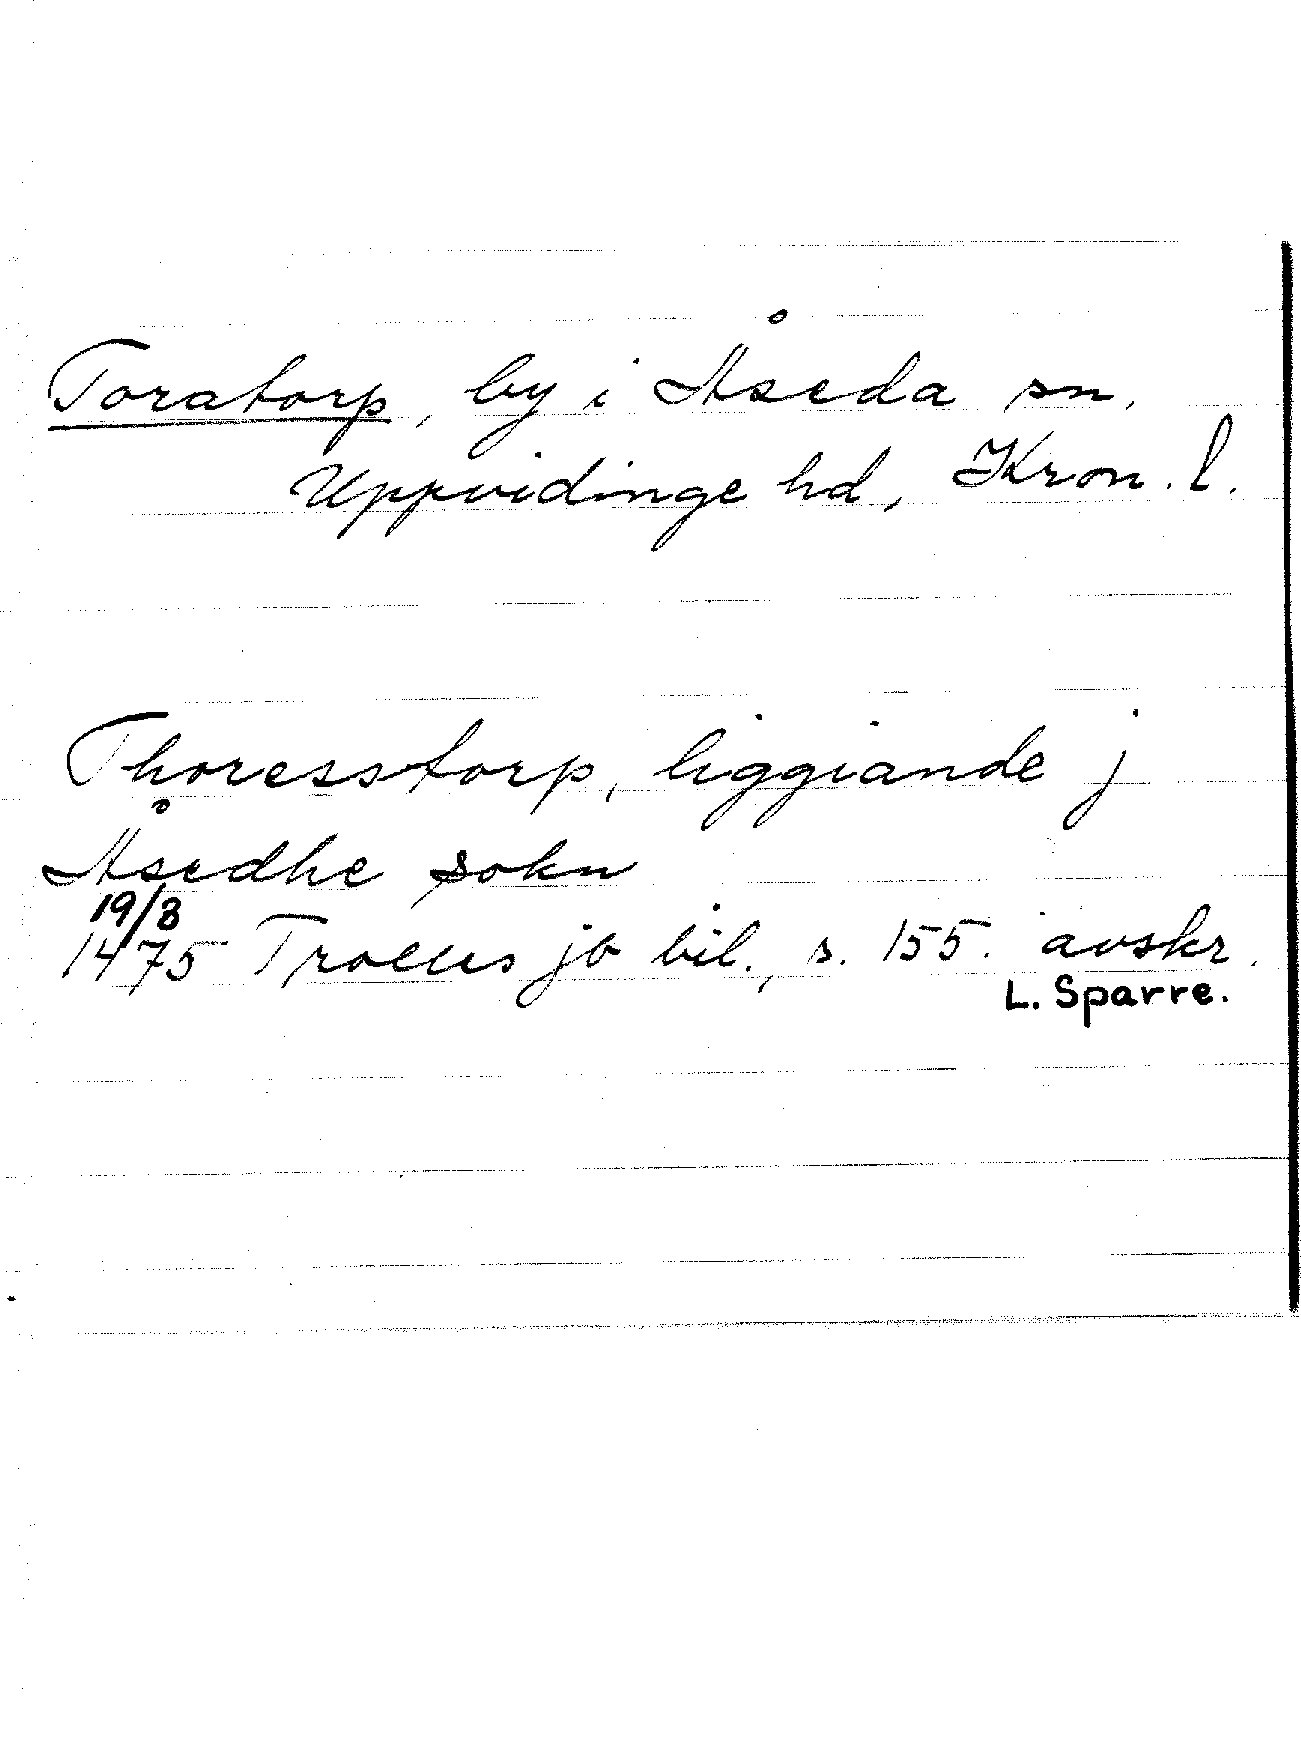 Toratorp, by i Åseda sn.
Uppvidinge hd, Kron. l.
Thoresstorp, liggiande j
Åsedhe sokn
19/8
1475 Trolles jb bil., s. 155. avskr.
L. Sparre.